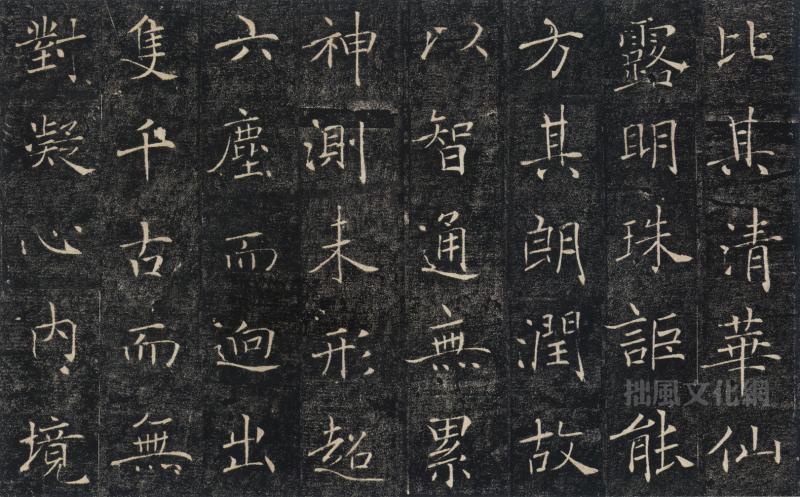 比其清華仙
露明珠詎能
方其朗潤故
以智通無累
神測未形超
六塵而迥出
隻千古而無
對凝心內境
拙風文化網